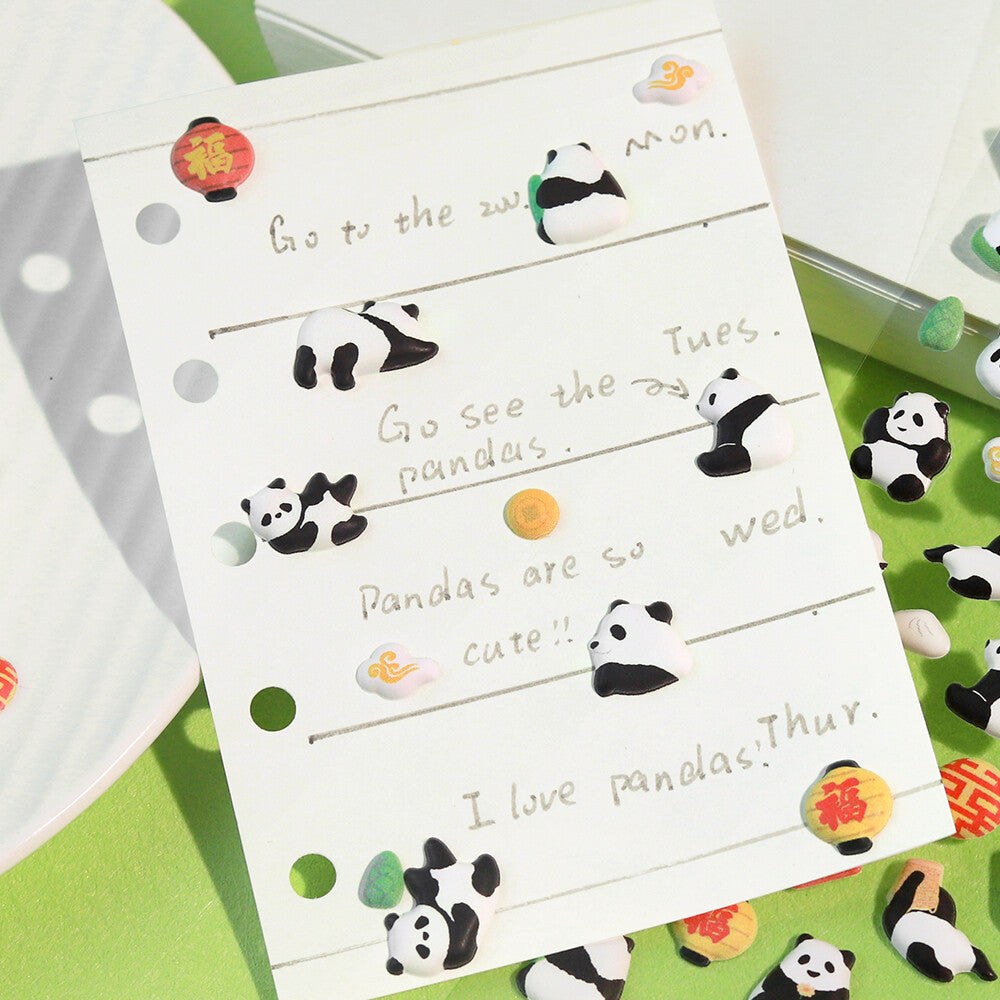 福
Mon.
Go to the zoo.
Tues.
Go see the
pandas.
wed.
Pandas are so
cute!!
Thur.
I love pandas!!
福
福